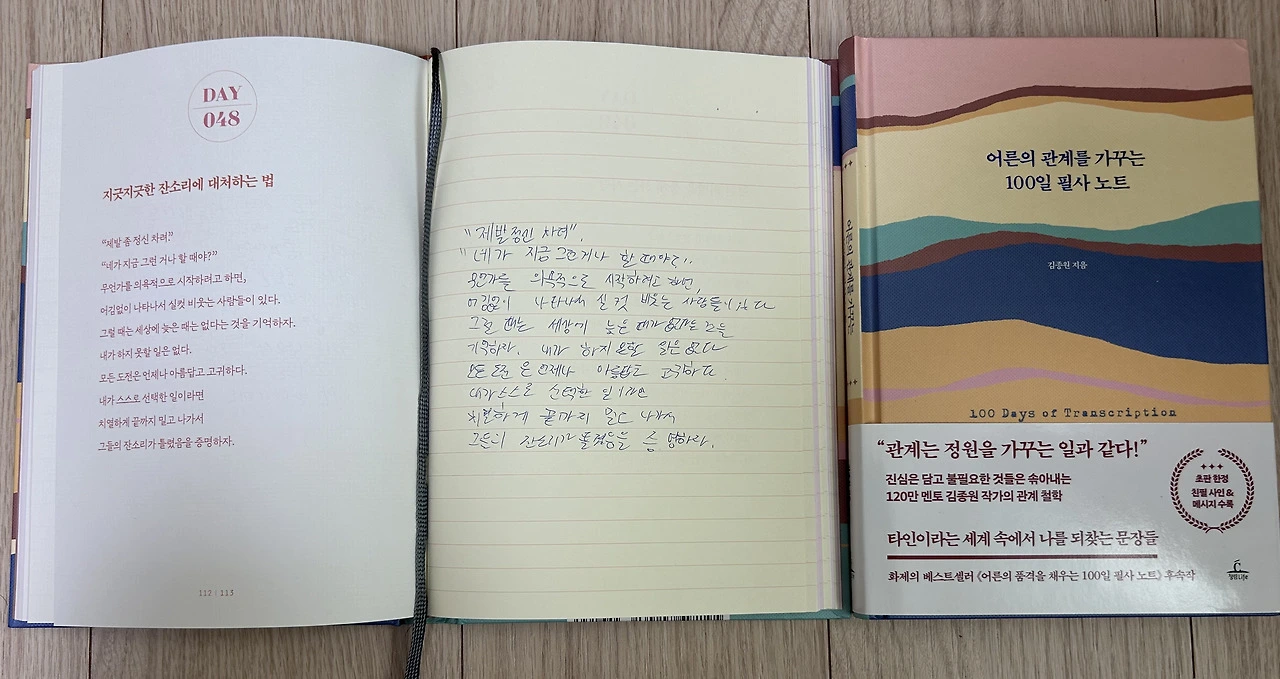 DAY
048
지긋지긋한 잔소리에 대처하는 법
“제발 좀 정신 차려.”
“네가 지금 그런 거나 할 때야?”
무언가를 의욕적으로 시작하려고 하면,
어김없이 나타나서 실컷 비웃는 사람들이 있다.
그럴 때는 세상에 늦은 때는 없다는 것을 기억하자.
내가 하지 못할 일은 없다.
모든 도전은 언제나 아름답고 고귀하다.
내가 스스로 선택한 일이라면
치열하게 끝까지 밀고 나가서
그들의 잔소리가 틀렸음을 증명하자.
112 | 113
“제발 정신 차려”.
“네가 지금 그런거나 할 때야?..
무언가를 의욕적으로 시작하려고 하면,
어김없이 나타나서 실컷 비웃는 사람들이 있다
그럴 때는 세상에 늦은 때가 없다는 것을
기억하자. 내가 하지 못할 일은 없다
모든 도전은 언제나 아름답고 고귀하다.
내가 스스로 선택한 일이라면
치열하게 끝까지 밀고 나가서
그들의 잔소리가 틀렸음을 증명하자.
어른의 관계를 가꾸는
어른의 관계를 가꾸는
100일 필사 노트
김종원 지음
100 Days of Transcription
“관계는 정원을 가꾸는 일과 같다!”
진심은 담고 불필요한 것들은 솎아내는
120만 멘토 김종원 작가의 관계 철학
초판 한정
친필 사인 &
메시지 수록
타인이라는 세계 속에서 나를 되찾는 문장들
화제의 베스트셀러 《어른의 품격을 채우는 100일 필사 노트》 후속작
청림Life